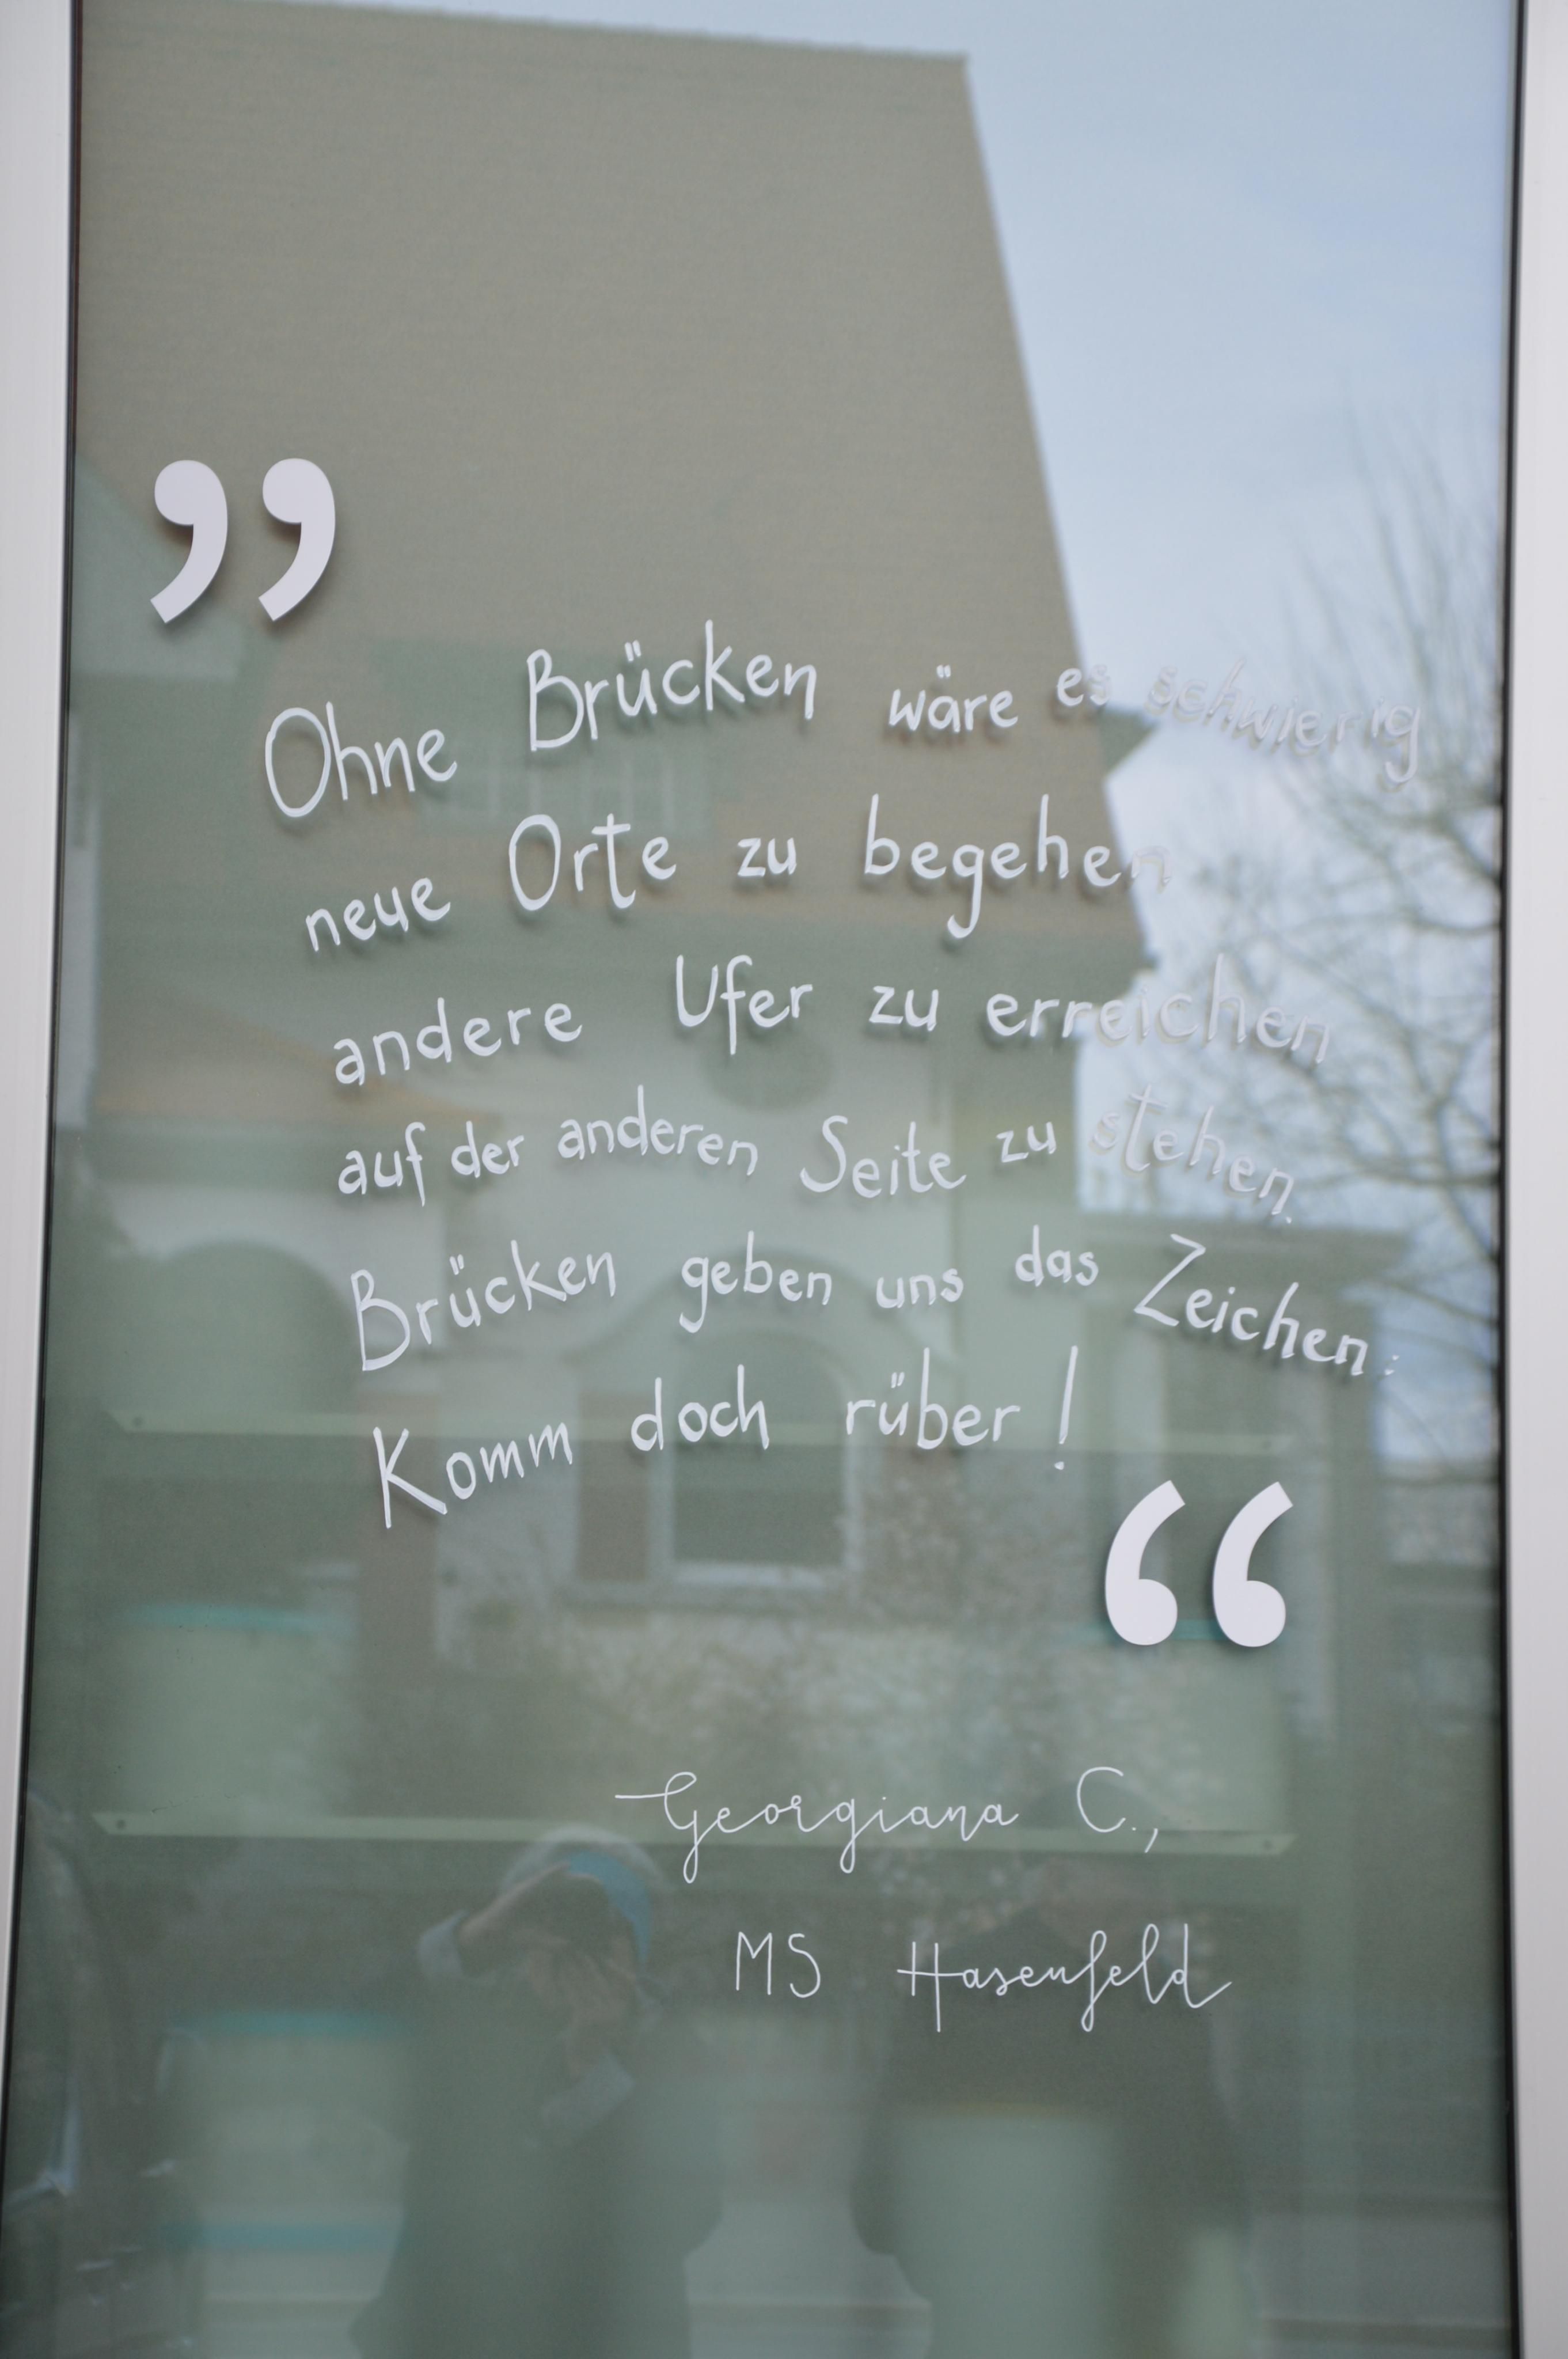 ”
Ohne Brücken wäre es schwierig
neue Orte zu begehen
andere Ufer zu erreichen
auf der anderen Seite zu stehen.
Brücken geben uns das Zeichen:
Komm doch rüber!
“
Georgiana C.,
MS Hasenfeld